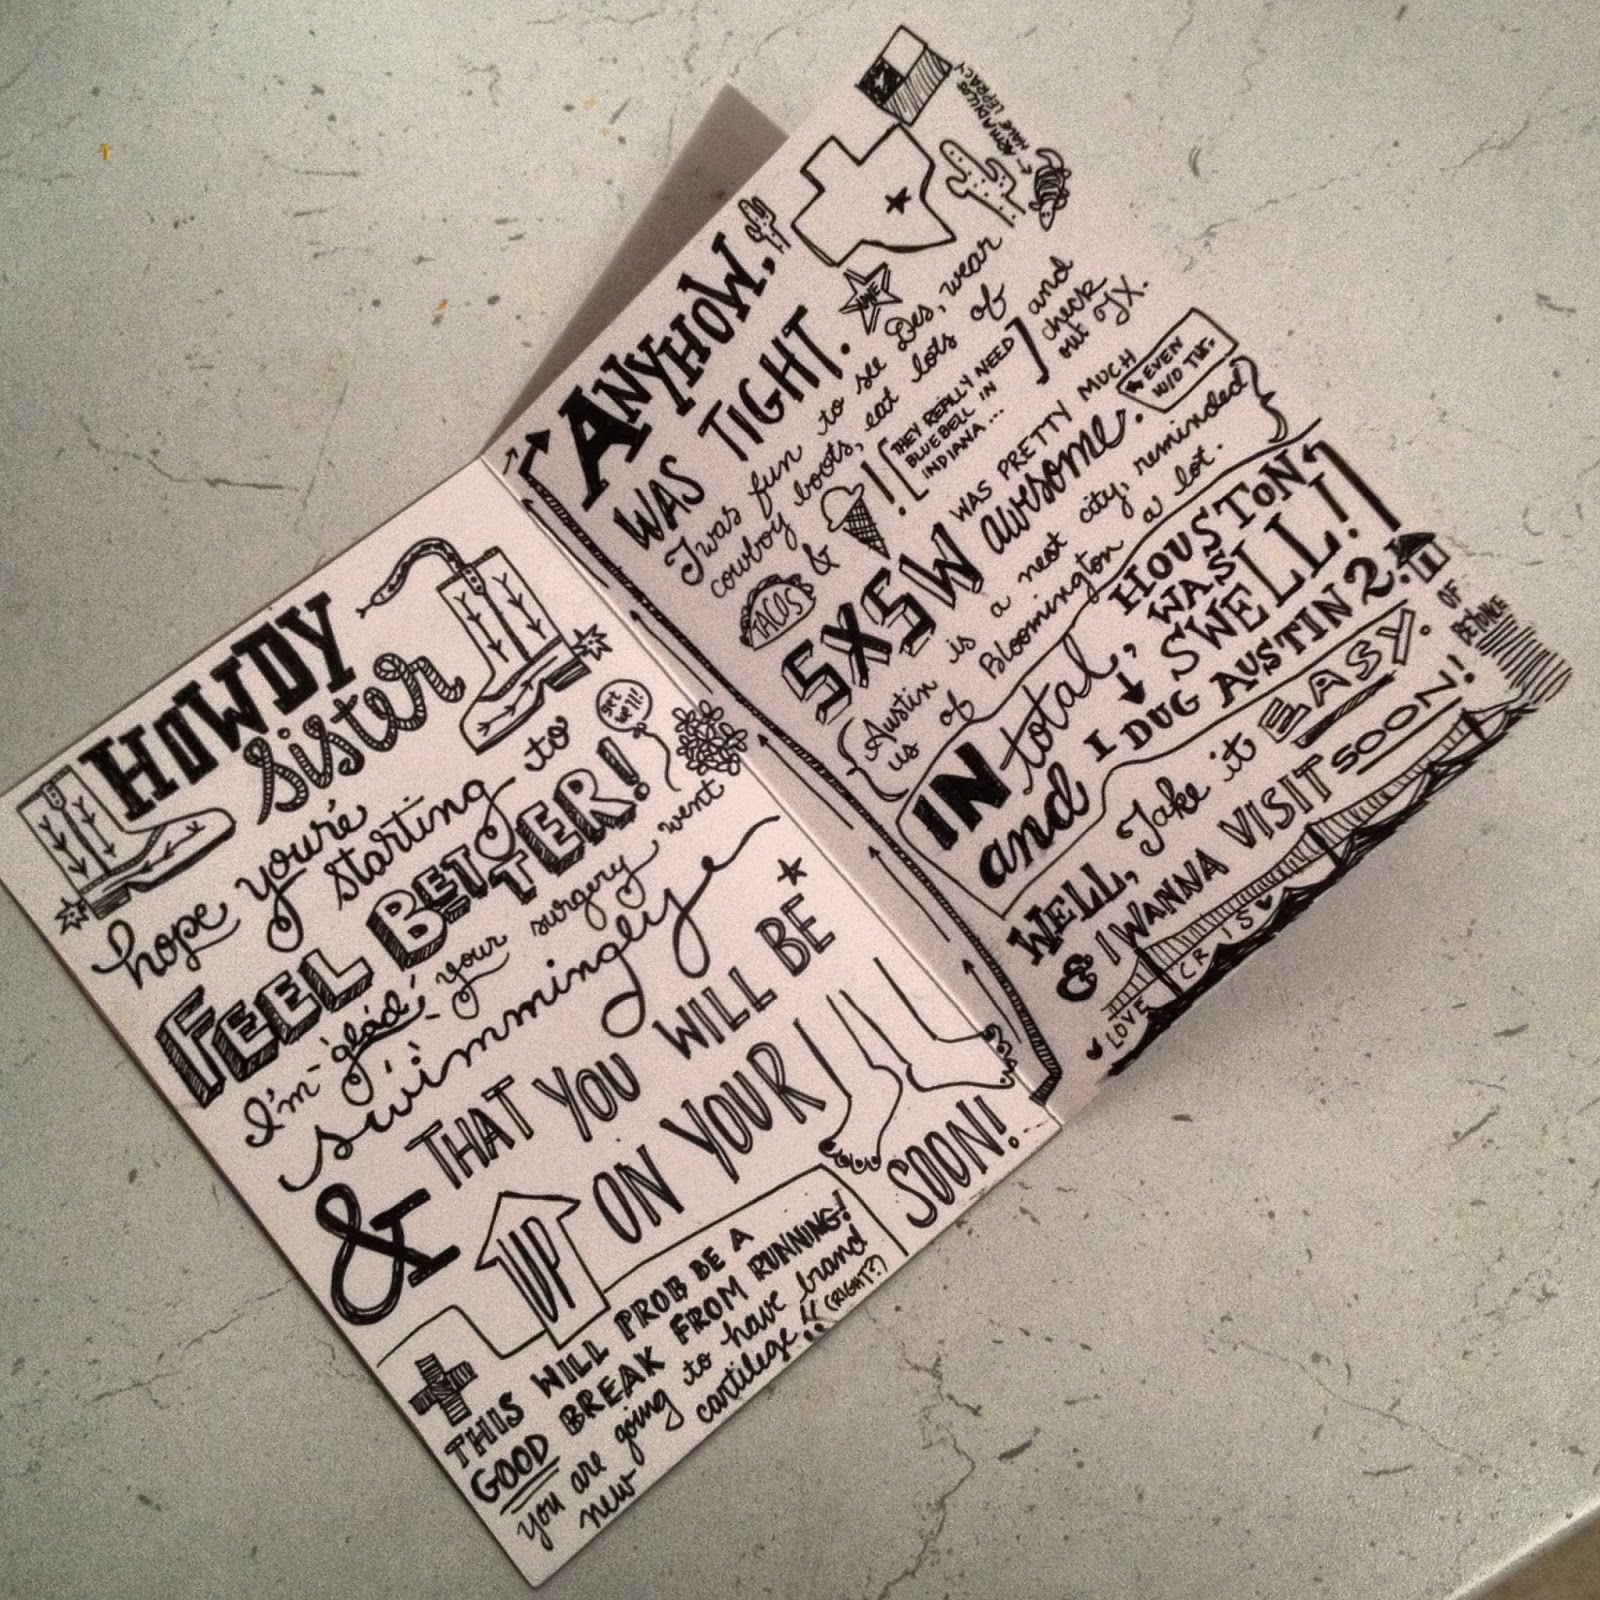 HOWDY
sister
hope you're
starting to
FEEL BETTER!
get well!
I'm glad your surgery went
swimmingly
& THAT YOU WILL BE
UP ON YOUR
SOON!
THIS WILL PROB BE A
GOOD BREAK FROM RUNNING!
you are going to have brand
new cartilege!! (RIGHT?)
ANYHOW,
WAS TIGHT.
ARMADILLOS
HAVE LEPRACY
Twas fun to see Des, wear
cowboy boots, eat lots of
TACOS & !
[THEY REALLY NEED
BLUE BELL IN
INDIANA...]
and
check
out TX.
SXSW WAS PRETTY MUCH
awesome.
EVEN
W/O TIX.
{Austin is a neat city, reminded
us of Bloomington a lot.}
IN total, HOUSTON
WAS
SWELL!
and I DUG AUSTIN 2.
OF
BEYONCE
WELL, Take it EASY.
& I WANNA VISIT SOON!
LOVE CRIS